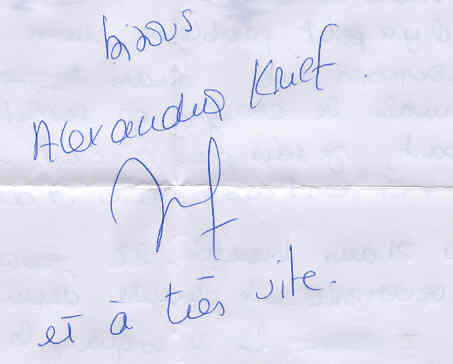 bisous
Alexandra Krief.
et à très vite.